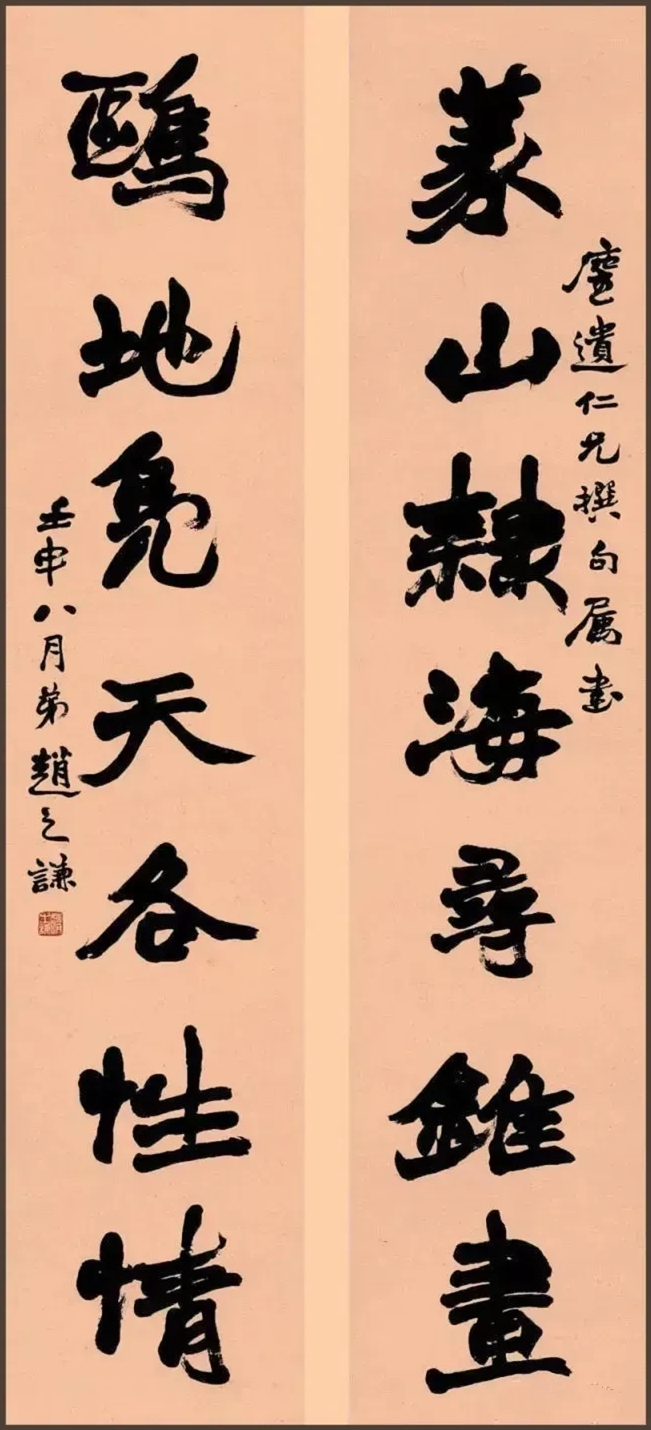 遺仁兄撰句屬書
篆山隸海尋錐畫
鷗地鳧天各性情
壬申八月弟趙之謙